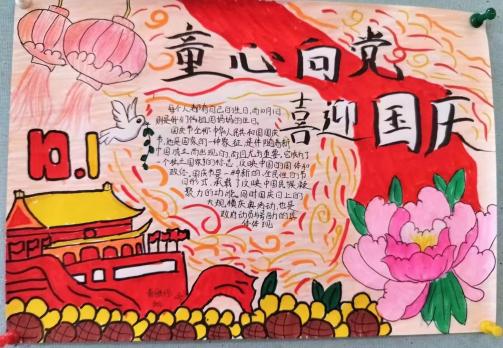 童心向党
喜迎国庆
10.1
每个人都有自己的生日,而10月1日
则是我们伟大祖国妈妈的生日。
国庆节全称中华人民共和国国庆
节,他是国家的一种象征,是伴随着新
中国成立而出现的,而且尤为重要。它成为了
一个独立国家的标志,反映中国的国体和
政体。国庆节是一种新的、全民性的节
日形式,承载了反映中国民族凝
聚力的功能。同时国庆日上的
大规模庆典活动,也是
政府动员与号召力的具
体体现。